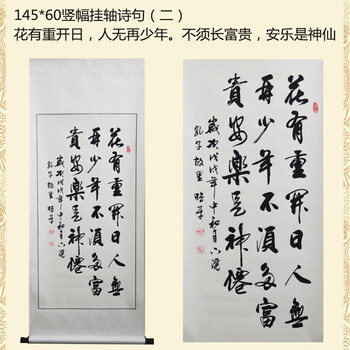 145*60竖幅挂轴诗句（二）
花有重开日，人无再少年。不须长富贵，安乐是神仙
花有重開日人無
再少年不須多富
貴安樂是神僊
歲次戊戌年中和月下浣
孔子故里
花有重開日人無
再少年不須多富
貴安樂是神僊
歲次戊戌年中和月下浣
孔子故里